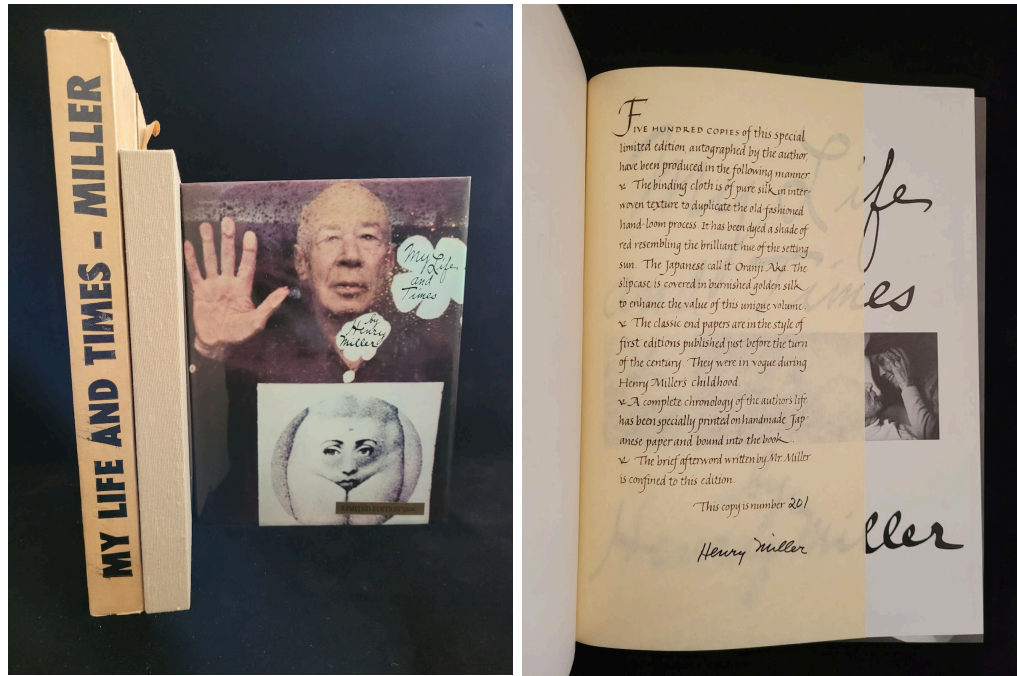 MY LIFE AND TIMES - MILLER
My Life
and
Times
by
Henry
Miller
LIMITED EDITION
FIVE HUNDRED COPIES of this special
limited edition, autographed by the author,
have been produced in the following manner.
The binding cloth is of pure silk in inter-
woven texture to duplicate the old-fashioned
hand-loom process. It has been dyed a shade of
red resembling the brilliant hue of the setting
sun. The Japanese call it Oranji Aka. The
slipcase is covered in burnished golden silk
to enhance the value of this unique volume.
The classic end papers are in the style of
first editions published just before the turn
of the century. They were in vogue during
Henry Miller's childhood.
A complete chronology of the author's life
has been specially printed on handmade Jap-
anese paper and bound into the book.
The brief afterword written by Mr. Miller
is confined to this edition.
This copy is number 201
Henry Miller
ife
es
ller